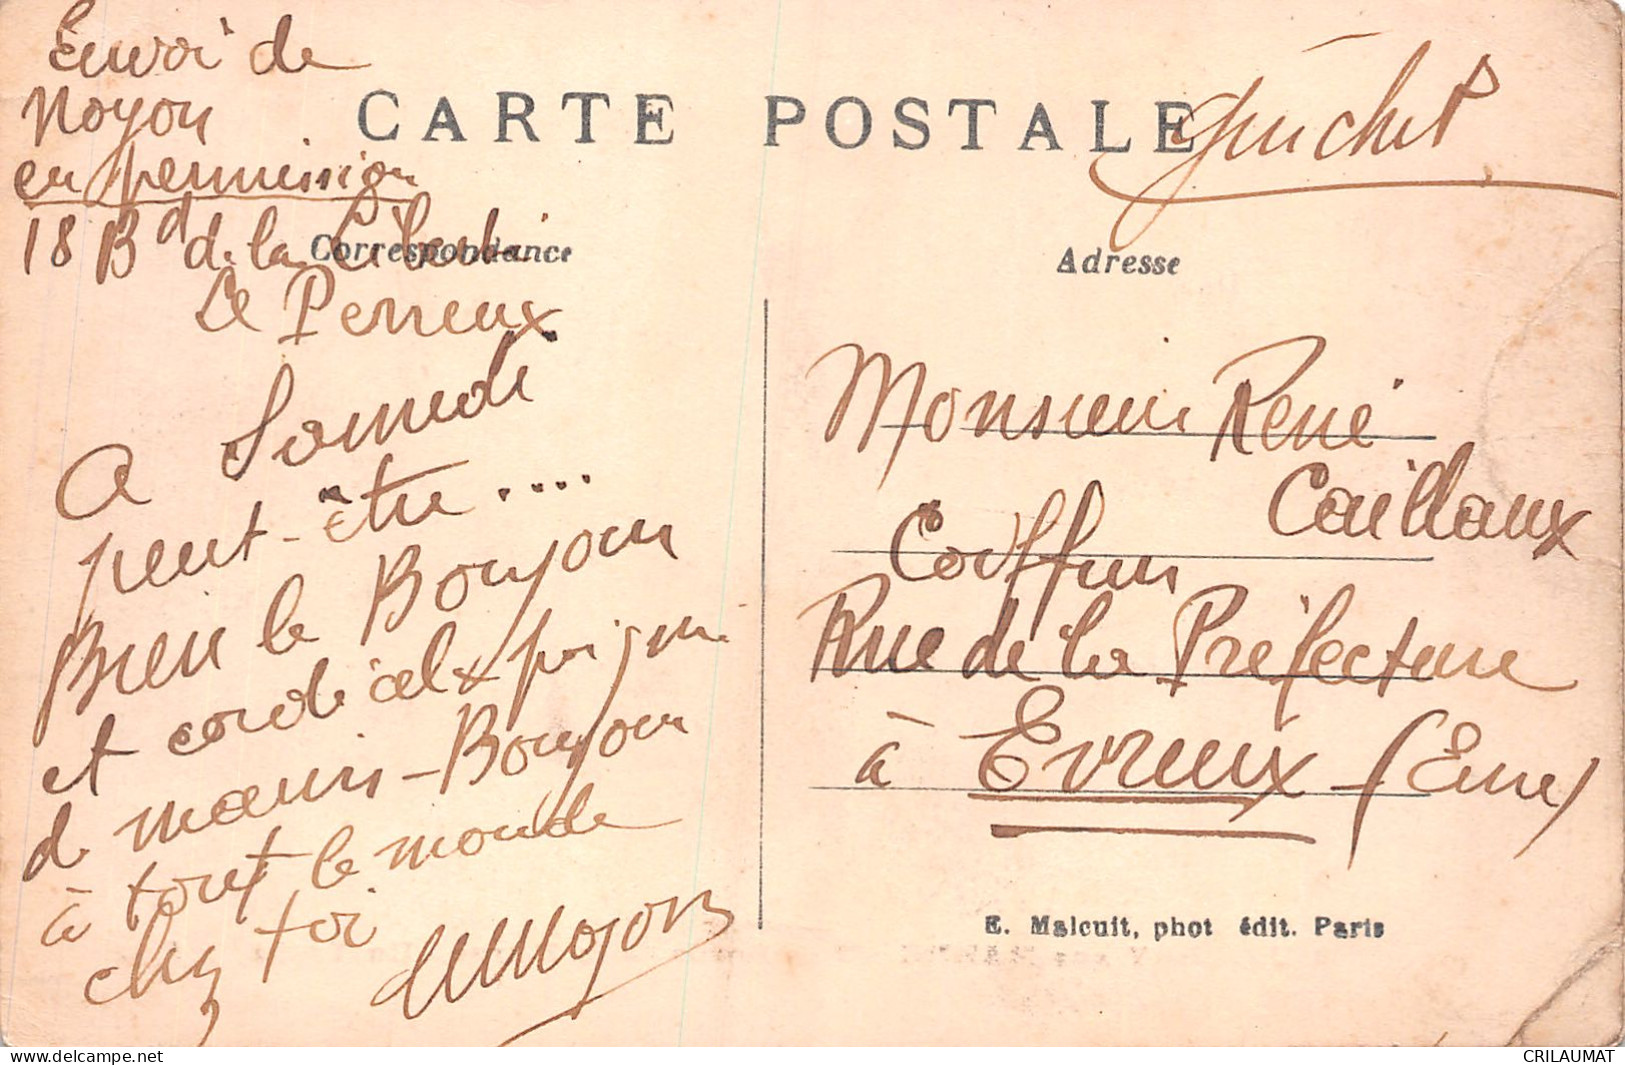 Envoi de
Noyon
en permission
18 Bd de la Liberté
Le Perreux
CARTE POSTALE
Guichet
Correspondance
Adresse
A Samedi
peut-être ....
Bien le Bonjour
et cordiales poignées
de mains - Bonjour
à tout le monde
chez toi
Noyon
Monsieur René
Caillaux
Coiffeur
Rue de la Préfecture
à Evreux (Eure)
E. Malcuit, phot édit. Paris
CRILAUMAT